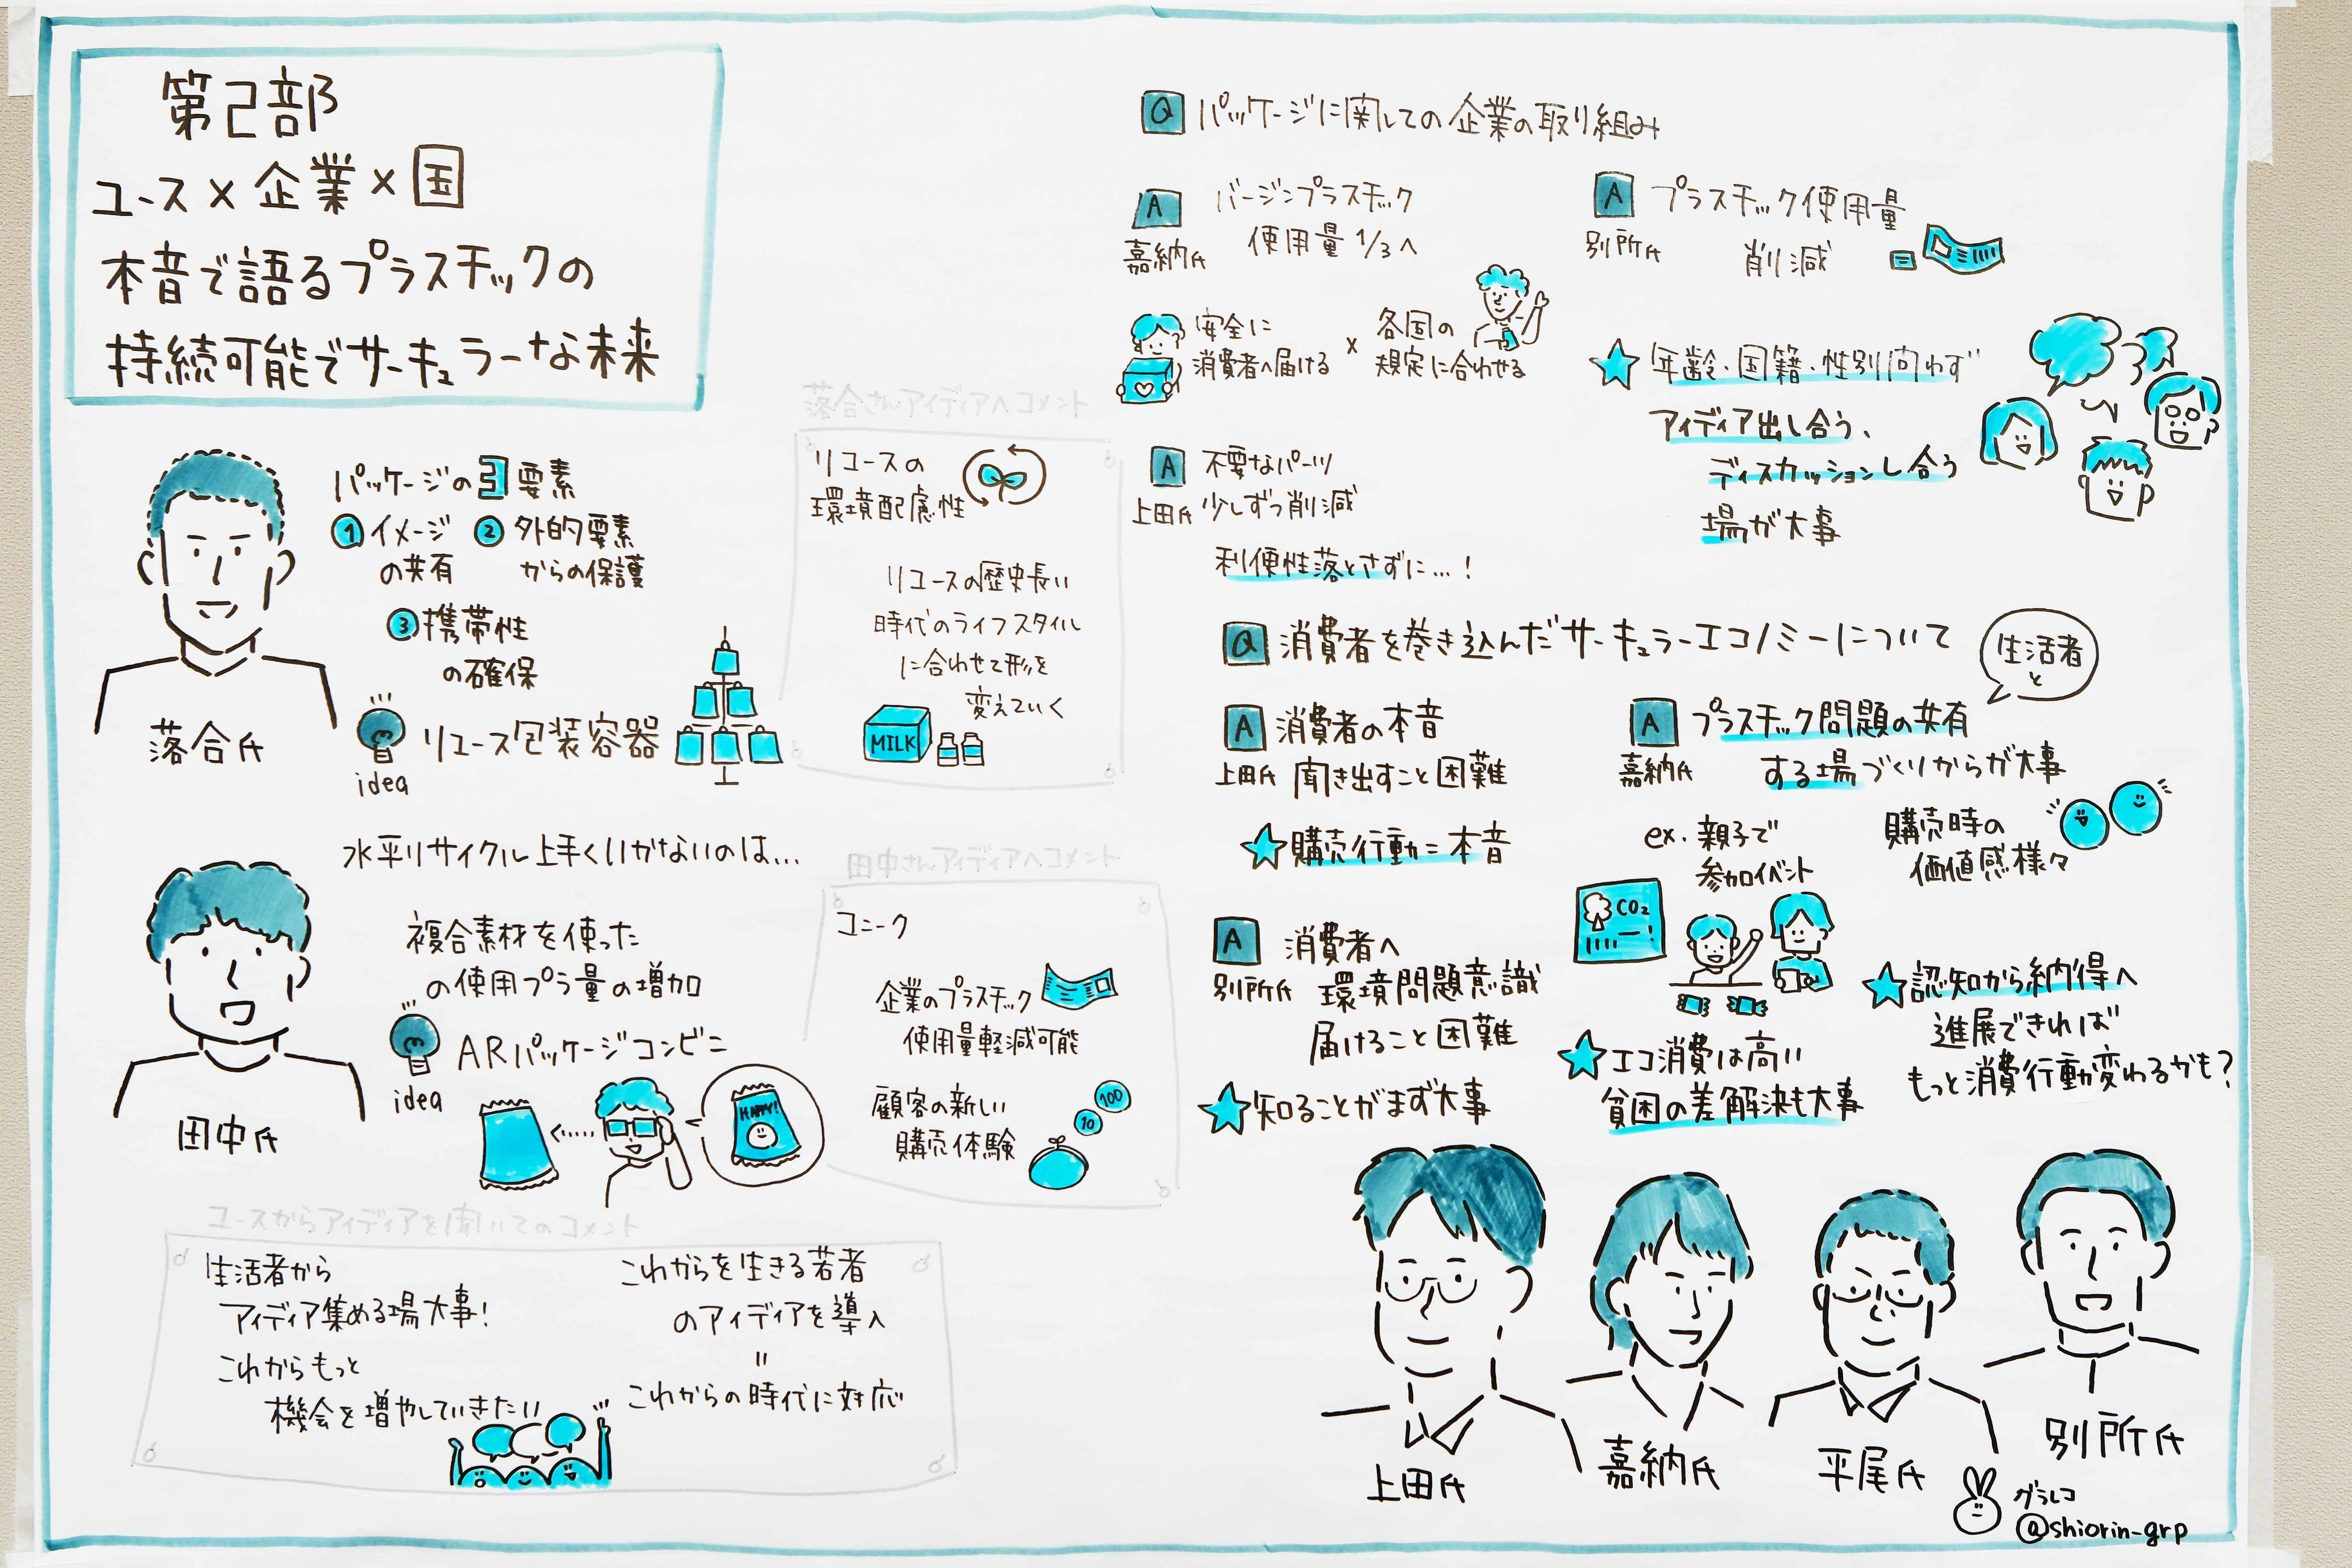 第2部
ユース×企業×国
本音で語るプラスチックの
持続可能でサーキュラーな未来
パッケージの3要素
①イメージ
の共有
②外的要素
からの保護
③携帯性
の確保
落合氏
idea
リユース包装容器
落合さんアイディアへコメント
リユースの
環境配慮性
リユースの歴史長い
時代のライフスタイル
に合わせて形を
変えていく
MILK
水平リサイクル上手くいかないのは…
複合素材を使った
の使用プラ量の増加
田中氏
idea
ARパッケージコンビニ
HAPPY!
田中さんアイディアへコメント
ユニーク
企業のプラスチック
使用量軽減可能
顧客の新しい
購売体験
100
10
ユースからアイディアを聞いてのコメント
生活者から
アイディア集める場大事!
これからもっと
機会を増やしていきたい
これからを生きる若者
のアイディアを導入
=
これからの時代に対応
Q パッケージに関しての企業の取り組み
A バージンプラスチック
嘉納氏 使用量1/3へ
安全に
消費者へ届ける
×
各国の
規定に合わせる
A プラスチック使用量
別所氏 削減
年齢・国籍・性別問わず
アイディア出し合う、
ディスカッションし合う
場が大事
A 不要なパーツ
上田氏 少しずつ削減
利便性落とさずに…!
Q 消費者を巻き込んだサーキュラーエコノミーについて
生活者
と
A 消費者の本音
上田氏 聞き出すこと困難
購売行動=本音
A プラスチック問題の共有
嘉納氏 する場づくりからが大事
ex. 親子で
参加イベント
購売時の
価値感様々
CO2
A 消費者へ
別所氏 環境問題意識
届けること困難
知ることがまず大事
エコ消費は高い
貧困の差解決も大事
認知から納得へ
進展できれば
もっと消費行動変わるかも?
上田氏
嘉納氏
平尾氏
別所氏
グラレコ
@shiorin_grp